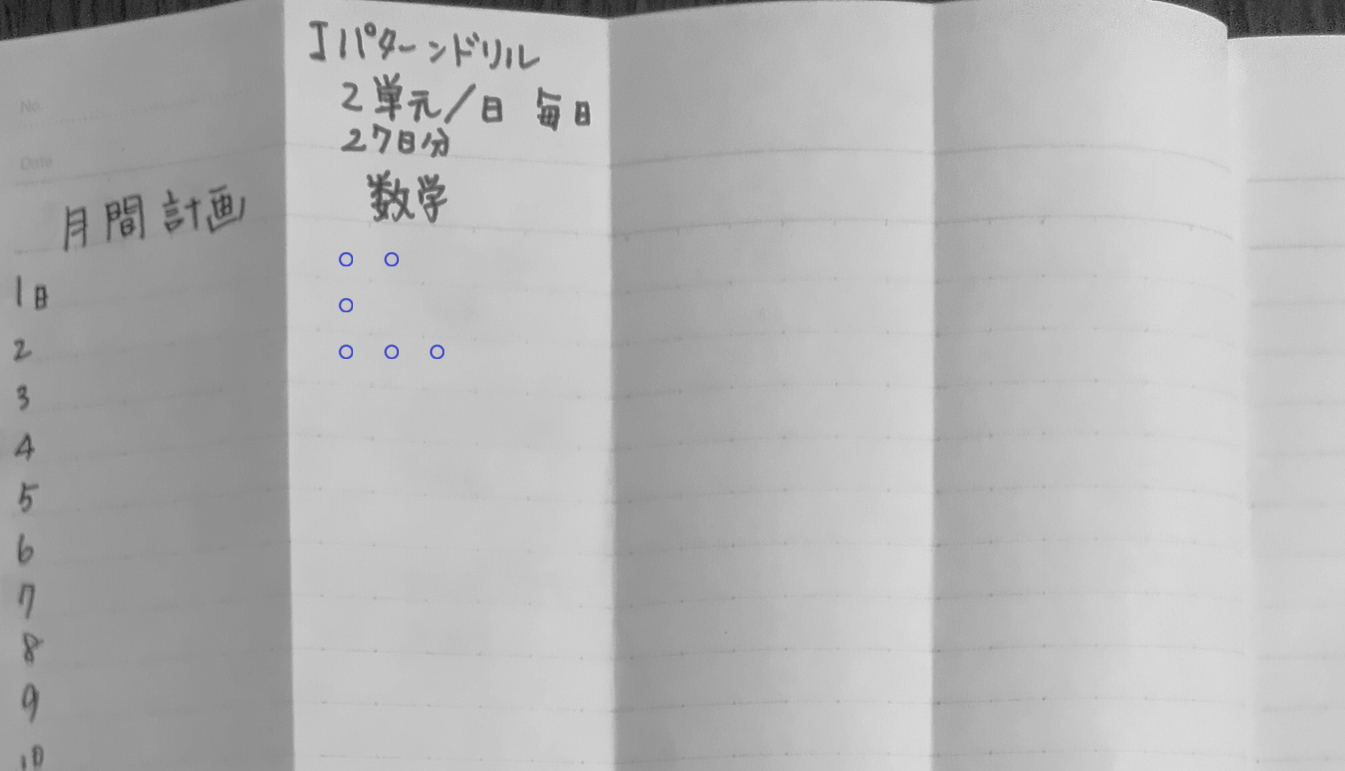 No.
Date
月間計画
1日
2
3
4
5
6
7
8
9
10
Iパターンドリル
2単元/日 毎日
27日分
数学
○ ○
○
○ ○ ○